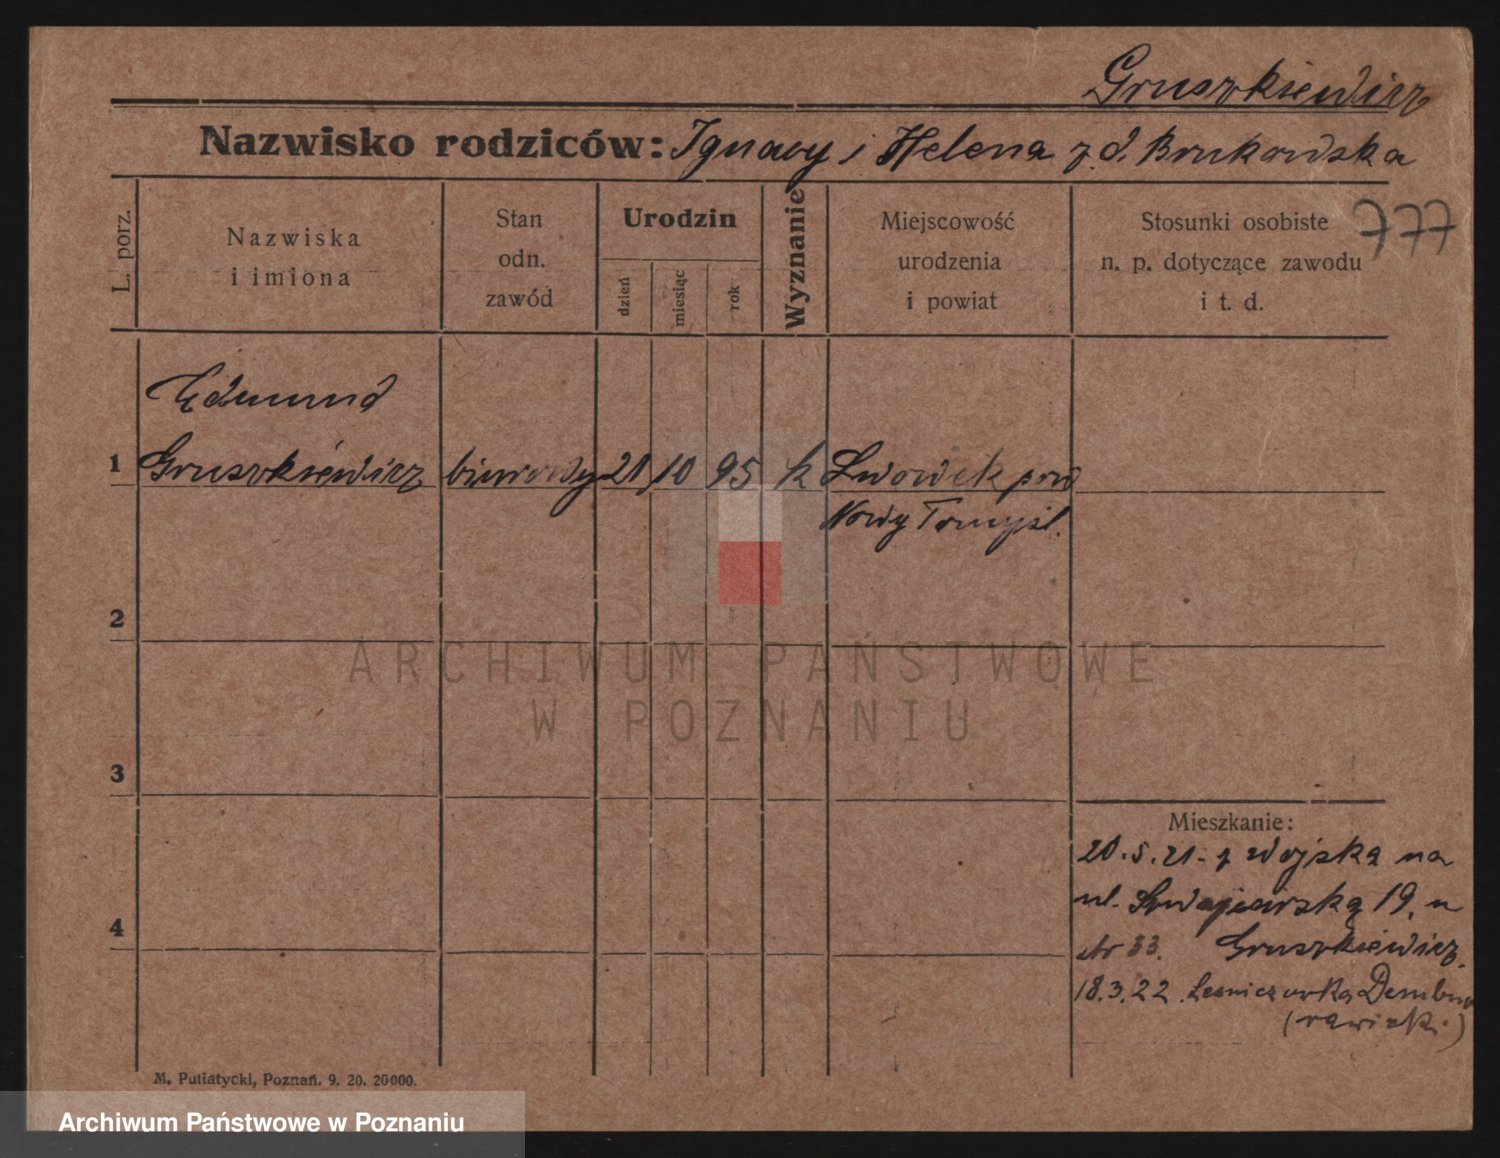 Gruszkiewicz
Nazwisko rodziców: Ignacy i Helena z d. Brukowska
777
L. porz.
Nazwiska
i imiona
Stan
odn.
zawód
Urodzin
dzień
miesiąc
rok
Wyznanie
Miejscowość
urodzenia
i powiat
Stosunki osobiste
n. p. dotyczące zawodu
i t. d.
Edmund
1 Gruszkiewicz biurowy 21 10 95 k Lwowek pow
Nowy Tomyśl.
2
ARCHIWUM PAŃSTWOWE
W POZNANIU
3
Mieszkanie:
20.5.21. z Wojska na
ul. 19. u
Nr 33. Gruszkiewicz.
4
18.3.22. Lesniczowka
(rawicki)
M. Putiatycki, Poznań. 9. 20. 20000.
Archiwum Państwowe w Poznaniu